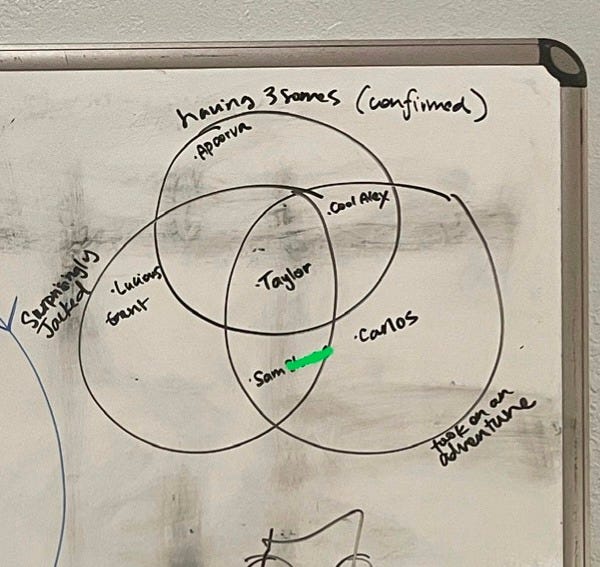 having 3somes (confirmed)
·Apoorva
·Cool Alex
Surprisingly
Jacked
·Lucious
Grant
·Taylor
·Carlos
·Sam
took on an
adventure